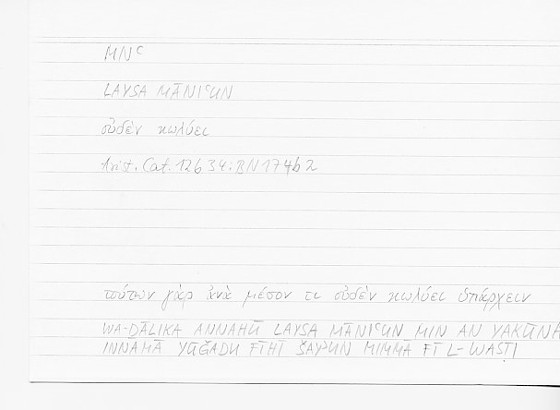 MNᶜ
LAYSA MĀNIᶜUN
οὐδὲν κωλύει
Arist. Cat. 12b 34: BN 174b2
τούτων γὰρ ἀνὰ μέσον τι οὐδὲν κωλύει ὑπάρχειν
WA-ḎĀLIKA ANNAHŪ LAYSA MĀNIᶜUN MIN AN YAKŪNA
INNAMĀ YŪǦADU FĪHĪ ŠAYʾUN MIMMĀ FĪ L-WASṬI